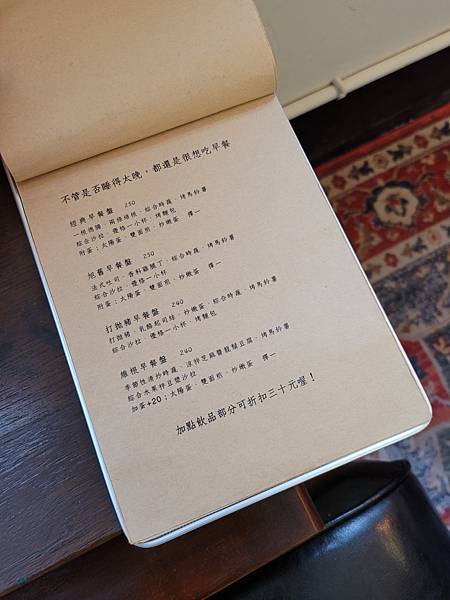 不管是否睡得太晚，都還是很想吃早餐
經典早餐盤 250
一根德腸、兩條培根、綜合時蔬、烤馬鈴薯
綜合沙拉、優格一小杯、烤麵包
附蛋；太陽蛋、雙面煎、炒嫩蛋 擇一
尬舊早餐盤 250
法式吐司、香料雞腿丁、綜合時蔬、烤馬鈴薯
綜合沙拉、優格一小杯
附蛋；太陽蛋、雙面煎、炒嫩蛋 擇一
打拋豬早餐盤 240
打拋豬、乳酪起司絲、炒嫩蛋、綜合時蔬、烤馬鈴薯
綜合沙拉、優格一小杯、烤麵包
維根早餐盤 240
季節性清炒時蔬、涼拌芝麻醬龍鬚豆腐、烤馬鈴薯
綜合水果拌豆漿沙拉
加蛋+20；太陽蛋、雙面煎、炒嫩蛋 擇一
加點飲品部分可折扣三十元喔！